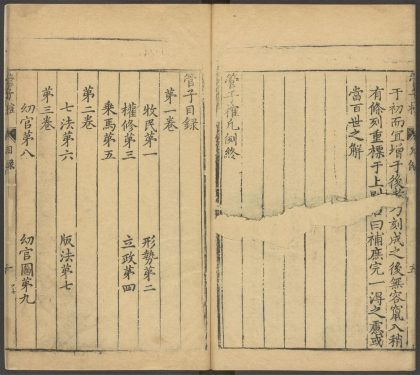 于初而宜增于後
刻成之後無容竄入稍
有條列重標于上
曰補庶完一得之慮或
當百世之解
管子榷凡例終
管子目録
第一卷
牧民第一 形勢第二
權修第三 立政第四
乘馬第五
第二卷
七法第六 版法第七
第三卷
幼官第八 幼官圖第九
管子榷 目録